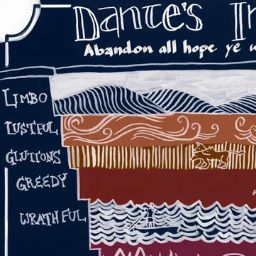 DANTE'S In
Abandon all hope ye w
LIMBO
LUSTFUL
GLUTTONS
GREEDY
WRATHFUL